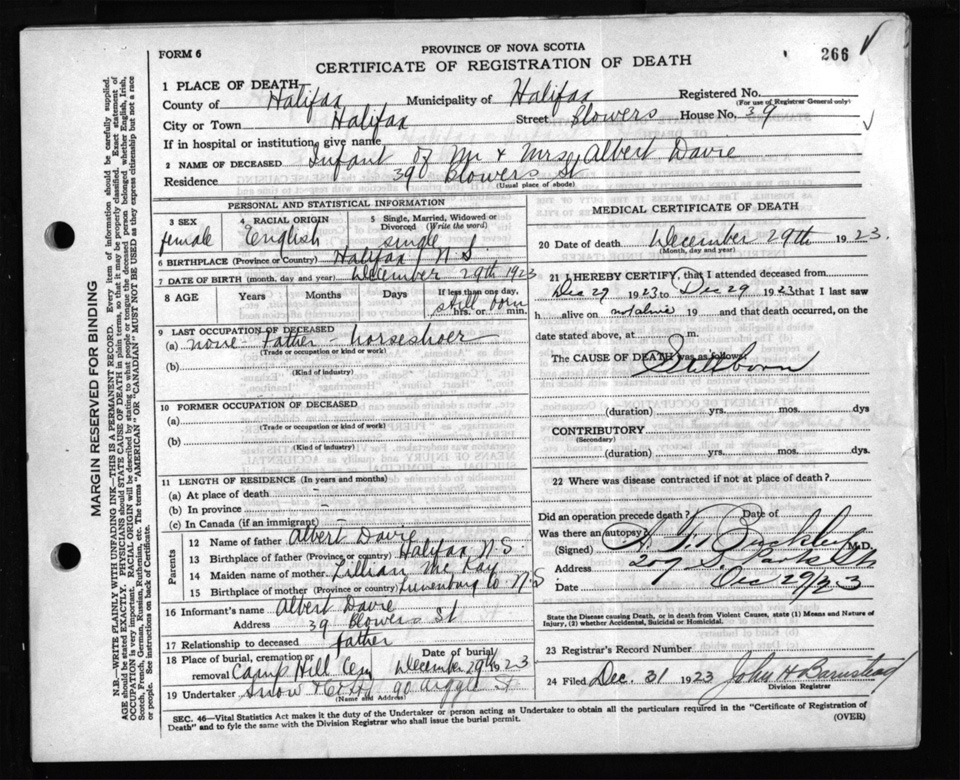 PROVINCE OF NOVA SCOTIA
FORM 6
CERTIFICATE OF REGISTRATION OF DEATH
266
1 PLACE OF DEATH
County of Halifax Municipality of Halifax Registered No.
(For use of Registrar General only)
City or Town Halifax Street Blowers House No. 39
If in hospital or institution, give name
2 NAME OF DECEASED Infant of Mr & Mrs Albert Davie
Residence 390 Blowers St
(Usual place of abode)
PERSONAL AND STATISTICAL INFORMATION
3 SEX 4 RACIAL ORIGIN 5 Single, Married, Widowed or Divorced (Write the word)
female English single
6 BIRTHPLACE (Province or Country) Halifax N S
7 DATE OF BIRTH (month, day and year) December 29th 1923
8 AGE Years Months Days If less than one day,
still born
hrs. or min.
9 LAST OCCUPATION OF DECEASED
(a) none - Father - horseshoer
(Trade or occupation or kind or work)
(b)
(Kind of industry)
10 FORMER OCCUPATION OF DECEASED
(a)
(Trade or occupation or kind or work)
(b)
(Kind of industry)
11 LENGTH OF RESIDENCE (In years and months)
(a) At place of death -
(b) In province -
(c) In Canada (if an immigrant) -
Parents
12 Name of father Albert Davie
13 Birthplace of father (Province or country) Halifax N.S.
14 Maiden name of mother Lillian McKay
15 Birthplace of mother (Province or country) Lunenburg Co N S
16 Informant's name Albert Davie
Address 39 Blowers St
17 Relationship to deceased Father
18 Place of burial, cremation or removal Camp Hill Cem Date of burial December 29th 1923
19 Undertaker Snow & Co 90 Argyle St
(Name and Address)
MEDICAL CERTIFICATE OF DEATH
20 Date of death December 29th 1923.
(Month, day and year)
21 I HEREBY CERTIFY, that I attended deceased from
Dec 29 1923 to Dec 29 1923 that I last saw
h alive on not alive 19 and that death occurred, on the
date stated above, at m.
The CAUSE OF DEATH was as follows:
Stillborn
(duration) yrs. mos. dys
CONTRIBUTORY
(Secondary)
(duration) yrs. mos. dys.
22 Where was disease contracted if not at place of death?
Did an operation precede death? Date of
Was there an autopsy
(Signed) Buckley M.D.
Address 207 S. Park St
Date Dec 29/23
State the Disease causing Death, or in death from Violent Causes, state (1) Means and Nature of
Injury, (2) whether Accidental, Suicidal or Homicidal.
23 Registrar's Record Number
24 Filed Dec. 31 1923 John H Barnstead
Division Registrar
SEC. 46—Vital Statistics Act makes it the duty of the Undertaker or person acting as Undertaker to obtain all the particulars required in the "Certificate of Registration of
Death" and to fyle the same with the Division Registrar who shall issue the burial permit.
(OVER)
MARGIN RESERVED FOR BINDING
N.B.—WRITE PLAINLY WITH UNFADING INK—THIS IS A PERMANENT RECORD. Every item of information should be carefully supplied.
AGE should be stated EXACTLY. PHYSICIANS should STATE CAUSE OF DEATH in plain terms, so that it may be properly classified. Exact statement of
OCCUPATION is very important. RACIAL ORIGIN will be described by stating to what people or tongue the deceased person belonged, whether English, Irish,
Scotch, French, German, Russian, Ruthenian, etc. The terms "AMERICAN" OR "CANADIAN" MUST NOT BE USED as they express citizenship but not a race
or people. See instructions on back of Certificate.